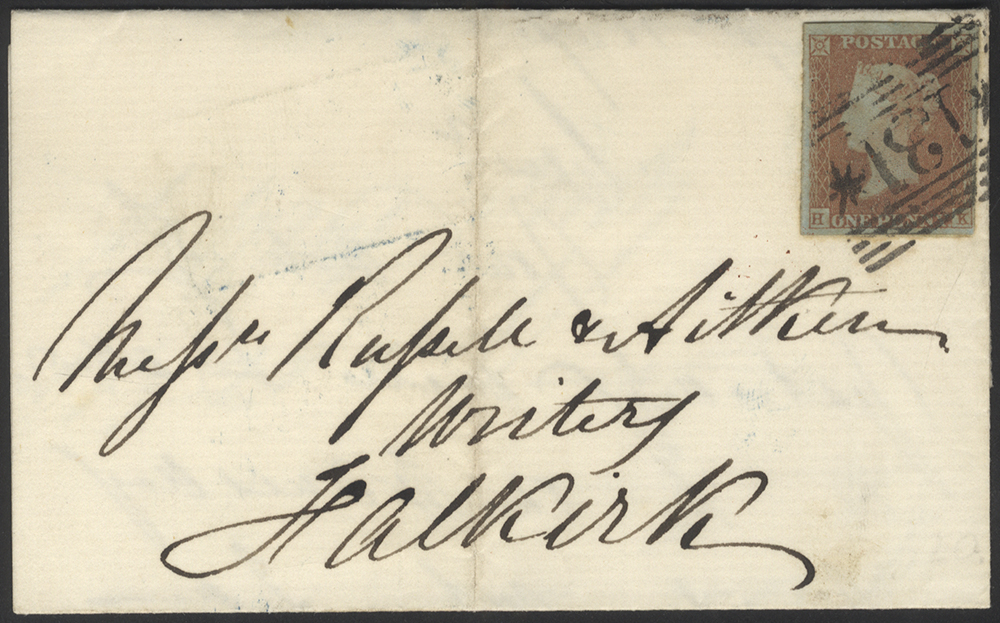 POSTAGE
131
H ONE PENNY K
Messrs Russell & Aitken
Writers
Falkirk